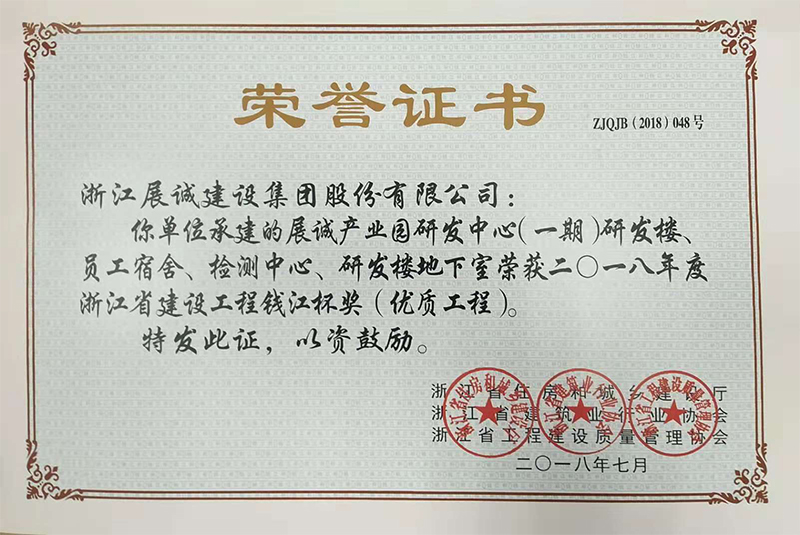 荣誉证书
ZJQJB（2018）048号
浙江展诚建设集团股份有限公司：
你单位承建的展诚产业园研发中心（一期）研发楼、
员工宿舍、检测中心、研发楼地下室荣获二〇一八年度
浙江省建设工程钱江杯奖（优质工程）。
特发此证，以资鼓励。
浙江省住房和城乡建设厅
浙江省建筑业行业协会
浙江省工程建设质量管理协会
二〇一八年七月